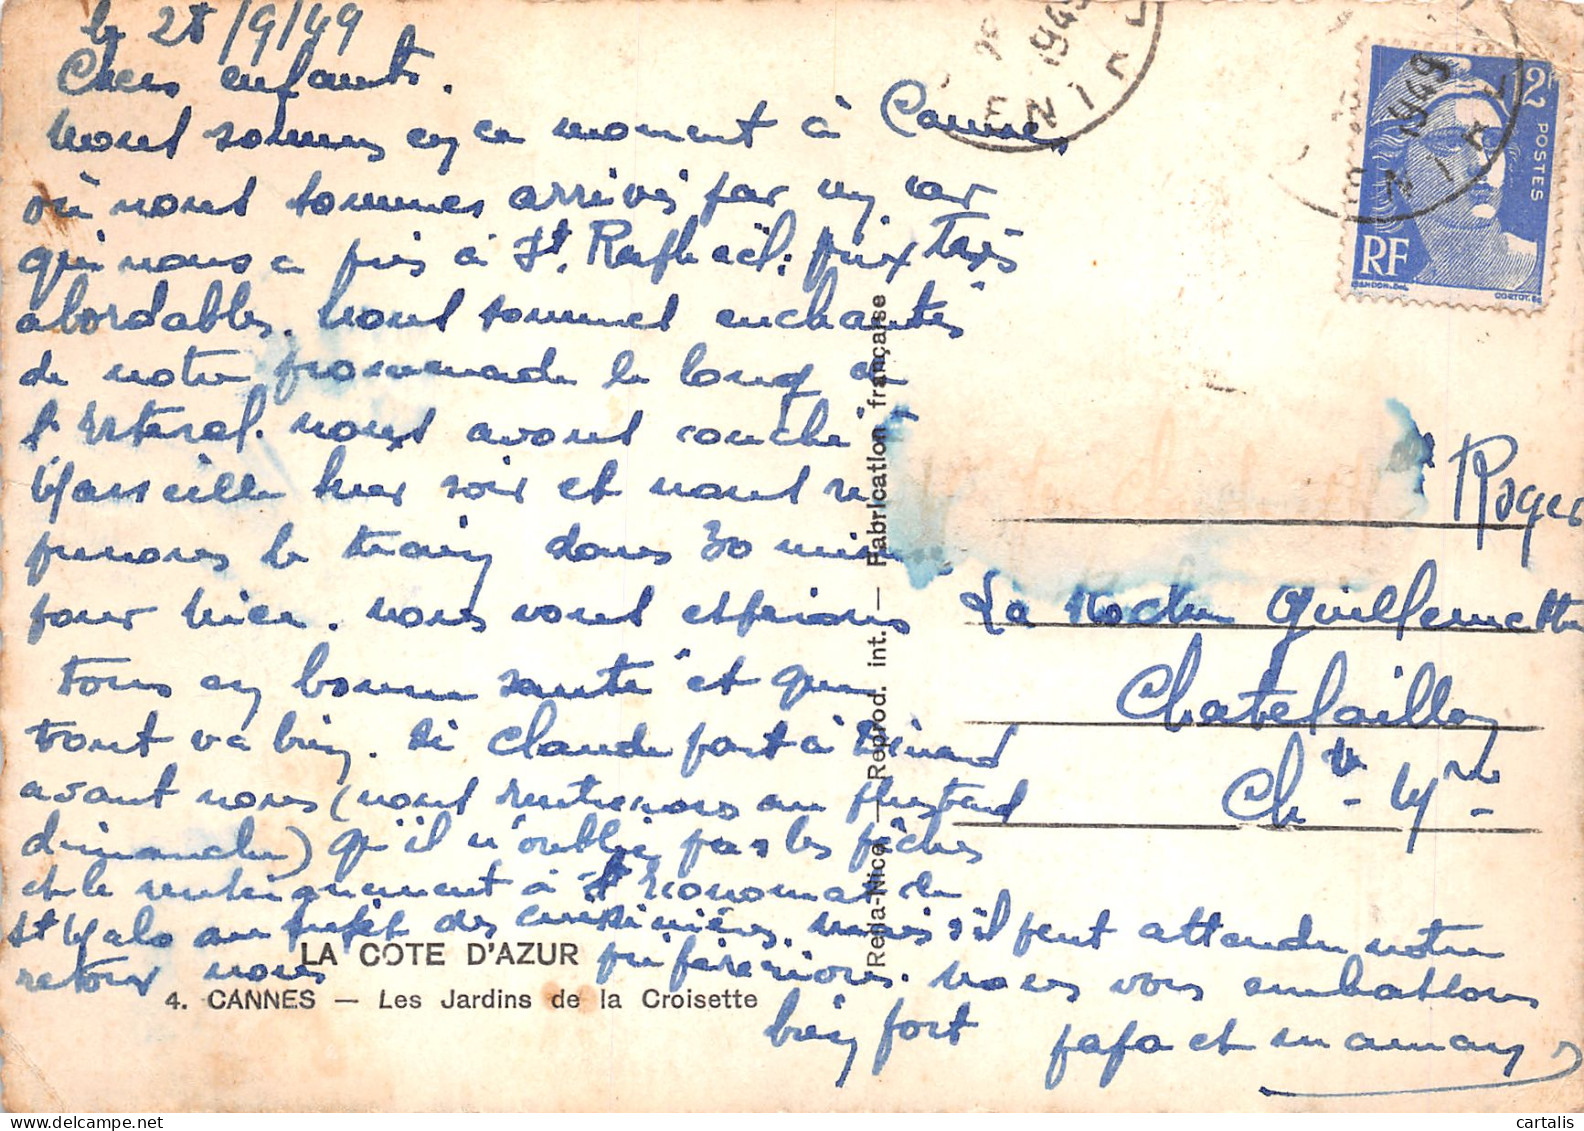 le 28/9/49
Chers enfants.
Nous sommes en ce moment à Cannes
où nous sommes arrivés par un car
qui nous a pris à St. Raphaël : prix très
abordables. Nous sommes enchantés
de notre promenade le long de
l'Esterel. nous avons couché
Marseille hier soir et nous re
prenons le train dans 30 minutes
pour Nice. nous vous espérons
tous en bonne santé et que
tout va bien. Si Claude part à Dinard
avant nous (nous rentrerons au plus tard
dimanche) qu'il n'oublie pas les pêches
et le renseignement à l'Economat de
St Malo au sujet des cuisinières. mais s'il peut attendre notre
retour nous préférerions. nous vous embrassons
bien fort papa et maman
LA COTE D'AZUR
4. CANNES — Les Jardins de la Croisette
Reda-Nice — Reprod. int. — Fabrication française
1949
ENIR
1949
NIR
2F
POSTES
RF
GANDON. DEL
CORTOT. SC
Roger
La Roche Guillemette
Chatelaillon
Chte - Mme
cartalis